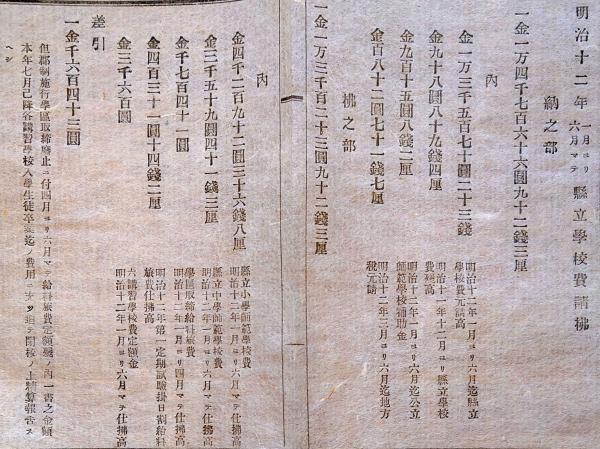 明治十二年 一月ヨリ六月マテ 縣立學校費請拂
納之部
一金一万四千七百六十六圓九十二錢三厘
内
金一万三千五百七十圓二十三錢
明治十二年一月ヨリ六月迄縣立
學校費元請高
金九十八圓八十九錢四厘
明治十一年十二月ヨリ縣立學校
費殘高
金九百十五圓九錢二厘
明治十二年一月ヨリ六月迄公立
師範學校補助金
金百八十二圓七十一錢七厘
明治十二年二月ヨリ六月迄地方
税元請
拂之部
一金一万三千百二十三圓九十二錢三厘
内
金四千二百九十二圓三十六錢八厘
縣立小學師範學校費
明治十二年一月ヨリ六月マテ仕拂高
金二千五十九圓四十一錢三厘
縣立中學師範學校費
明治十二年一月ヨリ六月マテ仕拂高
金千七百四十一圓
學區取締給料旅費
明治十二年一月ヨリ四月マテ仕拂高
金四百三十一圓十四錢二厘
明治十二年第一定期試驗掛日割給料
旅費仕拂高
金三千六百圓
六講習學校費定額金
明治十二年一月ヨリ六月マテ仕拂高
差引
一金千六百四十三圓
但郡制施行學區取締廢止ニ付四月ヨリ六月マテ給料旅費定額殘ノ内一書之金額
本年七月已降各講習學校入學生徒卒業迄ノ費用ニ充ツ追テ閉校ノ上精算報告ス
ヘシ